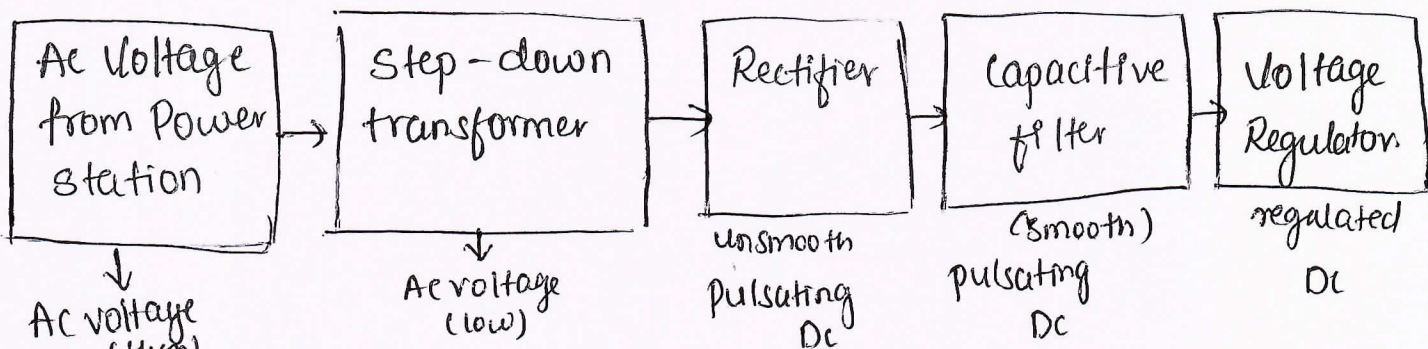 Ac Voltage
from Power
station
Step-down
transformer
Rectifier
Capacitive
filter
Voltage
Regulator
AC voltage
Ac voltage
(low)
unsmooth
pulsating
Dc
(smooth)
pulsating
DC
regulated
DC